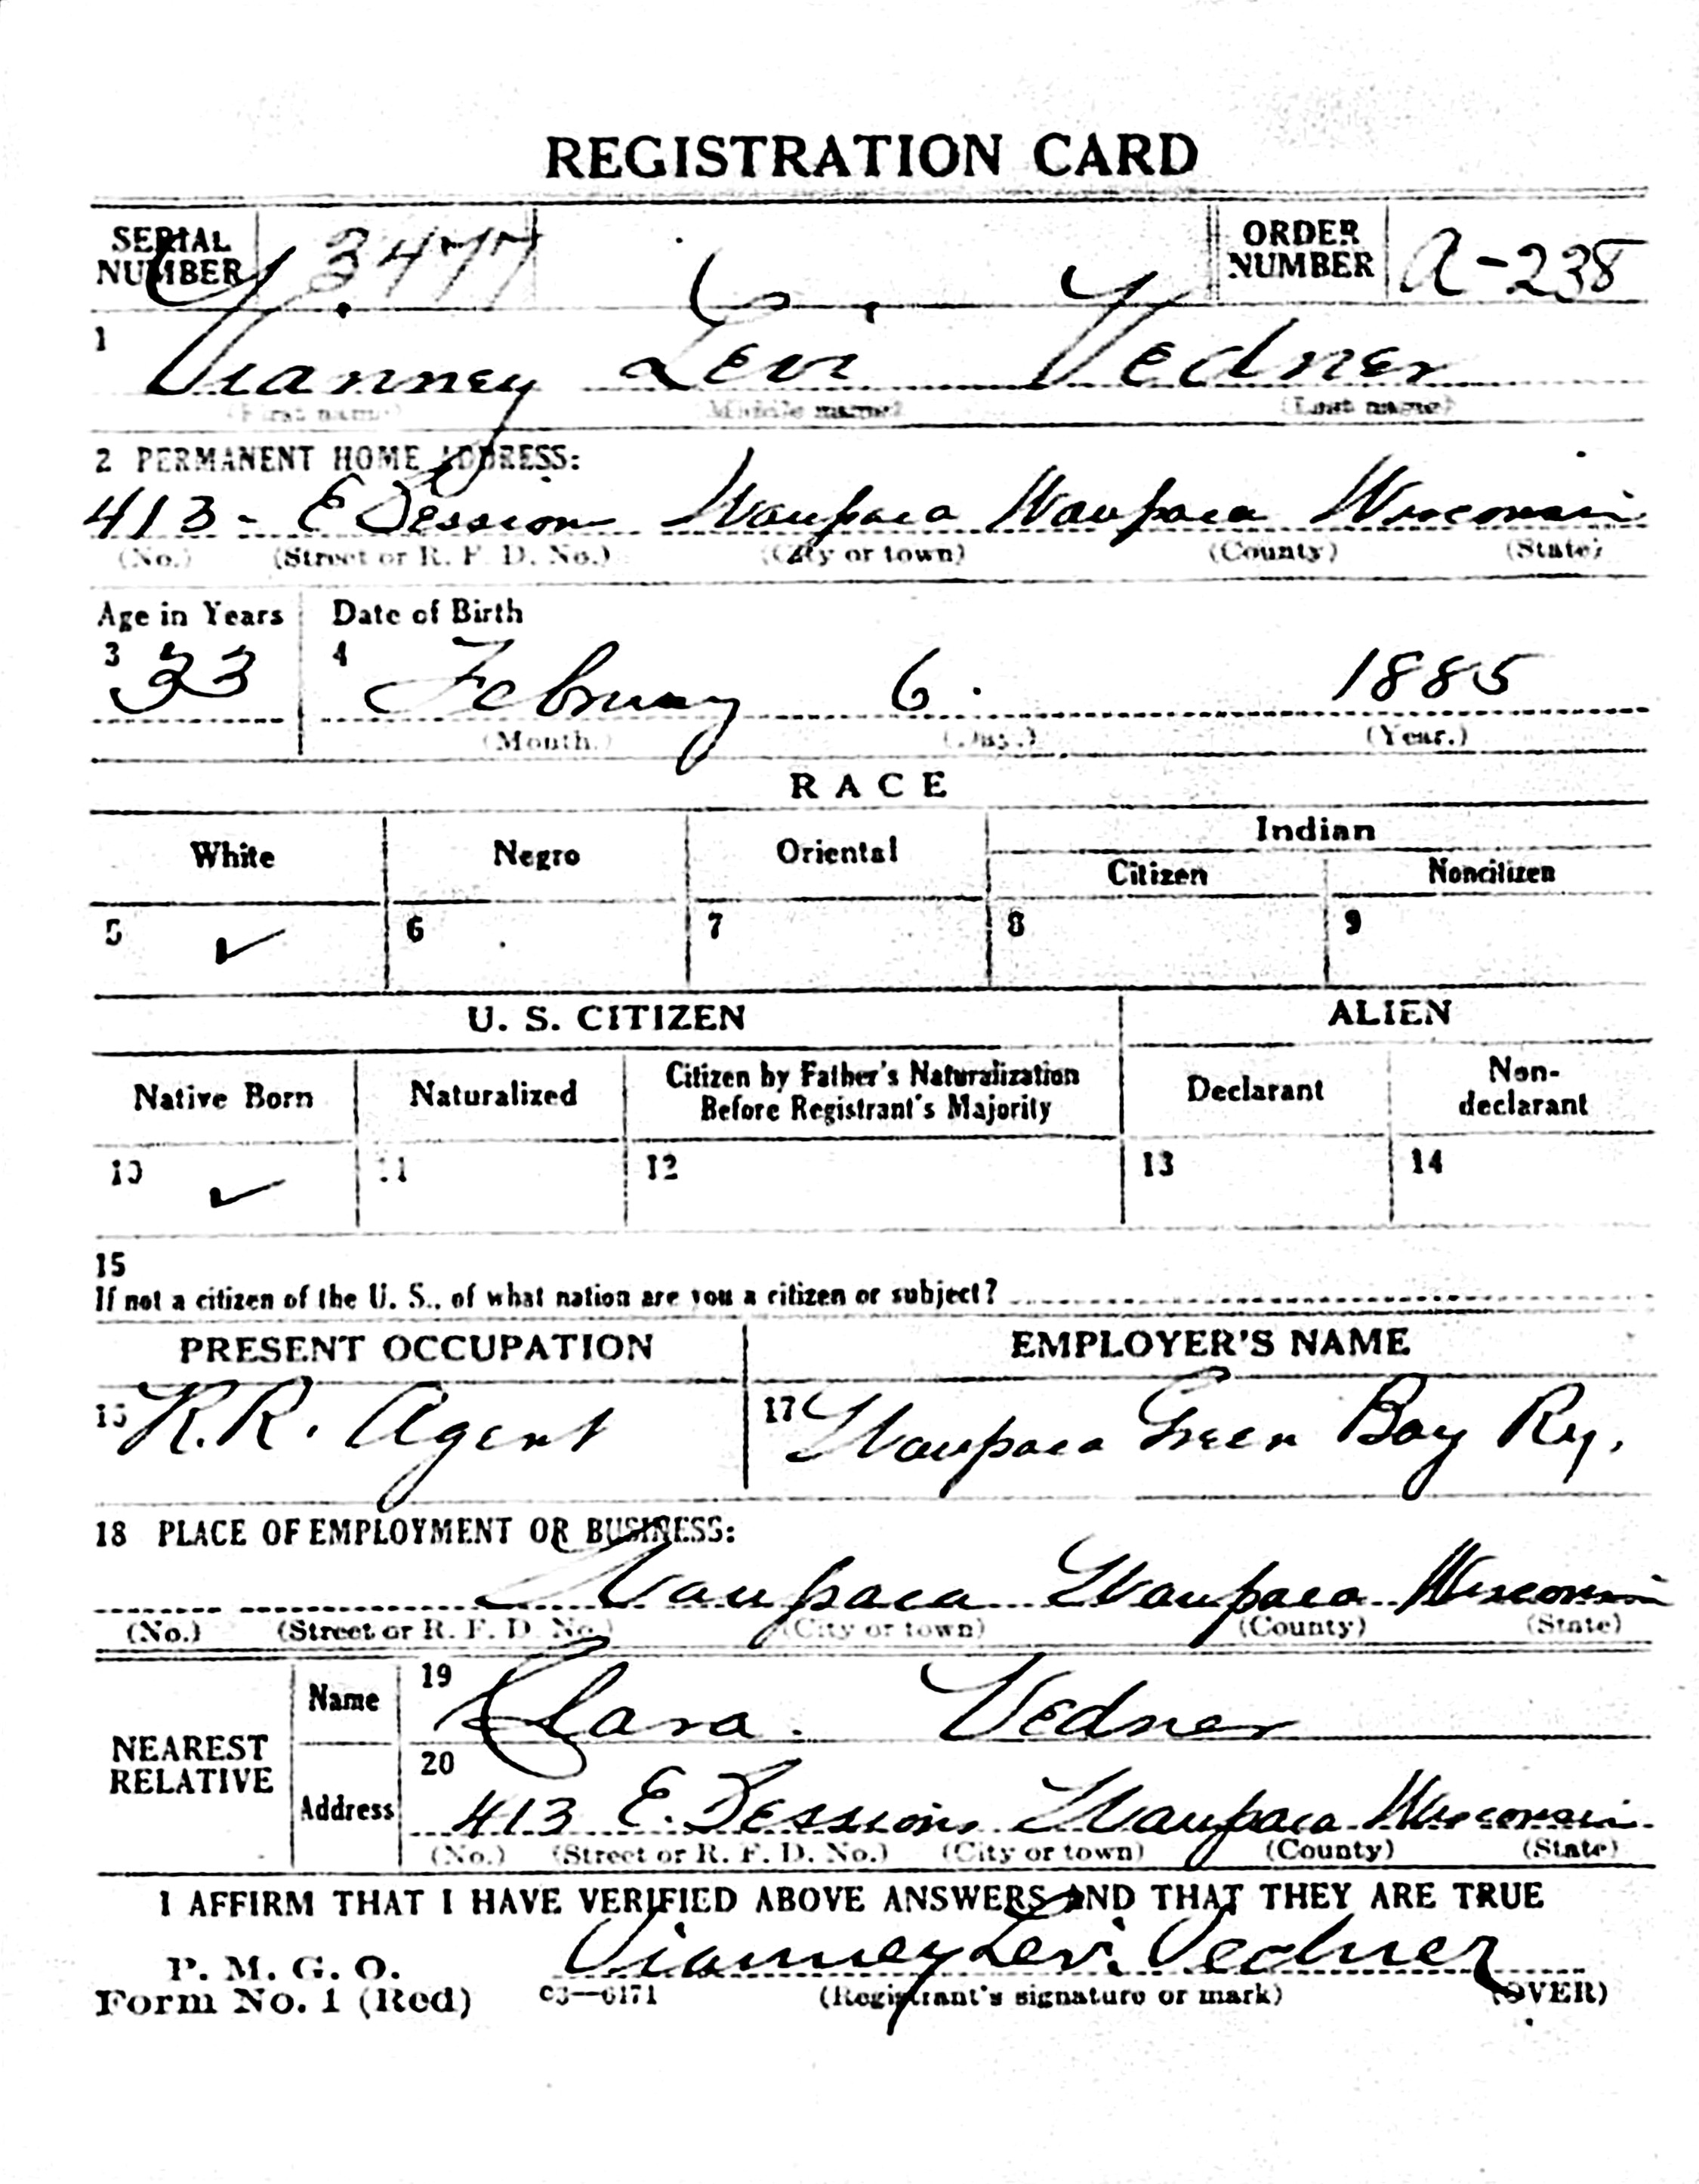 REGISTRATION CARD
SERIAL NUMBER 3477 ORDER NUMBER A-238
1 Vianney Levi Vedner
(First name) (Middle name) (Last name)
2 PERMANENT HOME ADDRESS:
413 - E Session Waupaca Waupaca Wisconsin
(No.) (Street or R. F. D. No.) (City or town) (County) (State)
Age in Years Date of Birth
3 33 4 February 6. 1885
(Month.) (Day.) (Year.)
RACE
White Negro Oriental Indian
Citizen Noncitizen
5 ✓ 6 7 8 9
U. S. CITIZEN ALIEN
Native Born Naturalized Citizen by Father's Naturalization Before Registrant's Majority Declarant Non-declarant
10 ✓ 11 12 13 14
15
If not a citizen of the U. S., of what nation are you a citizen or subject?
PRESENT OCCUPATION EMPLOYER'S NAME
16 R.R. Agent 17 Waupaca Green Bay Ry.
18 PLACE OF EMPLOYMENT OR BUSINESS:
Waupaca Waupaca Wisconsin
(No.) (Street or R. F. D. No.) (City or town) (County) (State)
NEAREST RELATIVE
Name 19 Clara Vedner
Address 20 413 E. Session Waupaca Wisconsin
(No.) (Street or R. F. D. No.) (City or town) (County) (State)
I AFFIRM THAT I HAVE VERIFIED ABOVE ANSWERS AND THAT THEY ARE TRUE
P. M. G. O.
Form No. 1 (Red) 03—6171 Vianney Levi Vedner
(Registrant's signature or mark) (OVER)